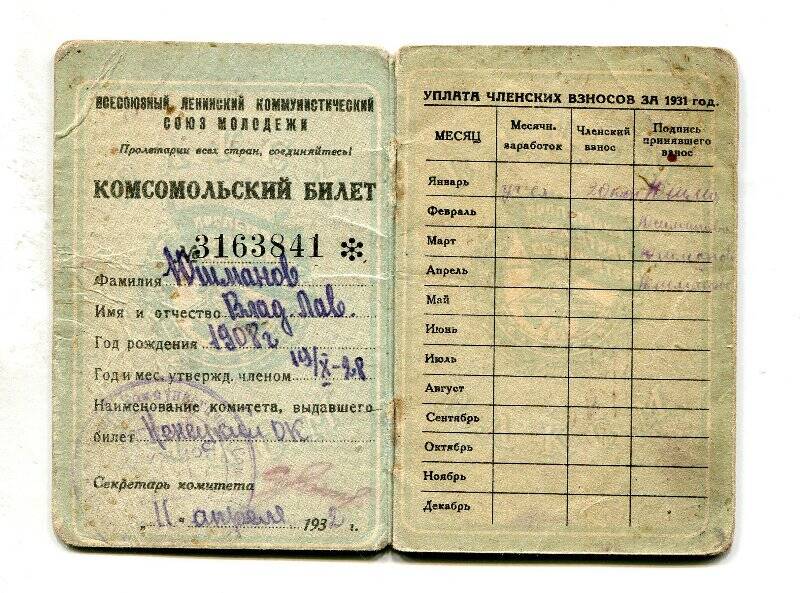 ВСЕСОЮЗНЫЙ ЛЕНИНСКИЙ КОММУНИСТИЧЕСКИЙ
СОЮЗ МОЛОДЕЖИ
Пролетарии всех стран, соединяйтесь!
КОМСОМОЛЬСКИЙ БИЛЕТ
3163841 *
Фамилия
Имя и отчество Влад. Лав.
Год рождения 1908 г
Год и мес. утвержд. членом 19/X-28
Наименование комитета, выдавшего
билет ОК
Секретарь комитета
„11" апреля 1932 г.
УПЛАТА ЧЛЕНСКИХ ВЗНОСОВ ЗА 1931 год.
МЕСЯЦ Месячн. заработок Членский взнос Подпись принявшего взнос
Январь
Февраль
Март
Апрель
Май
Июнь
Июль
Август
Сентябрь
Октябрь
Ноябрь
Декабрь